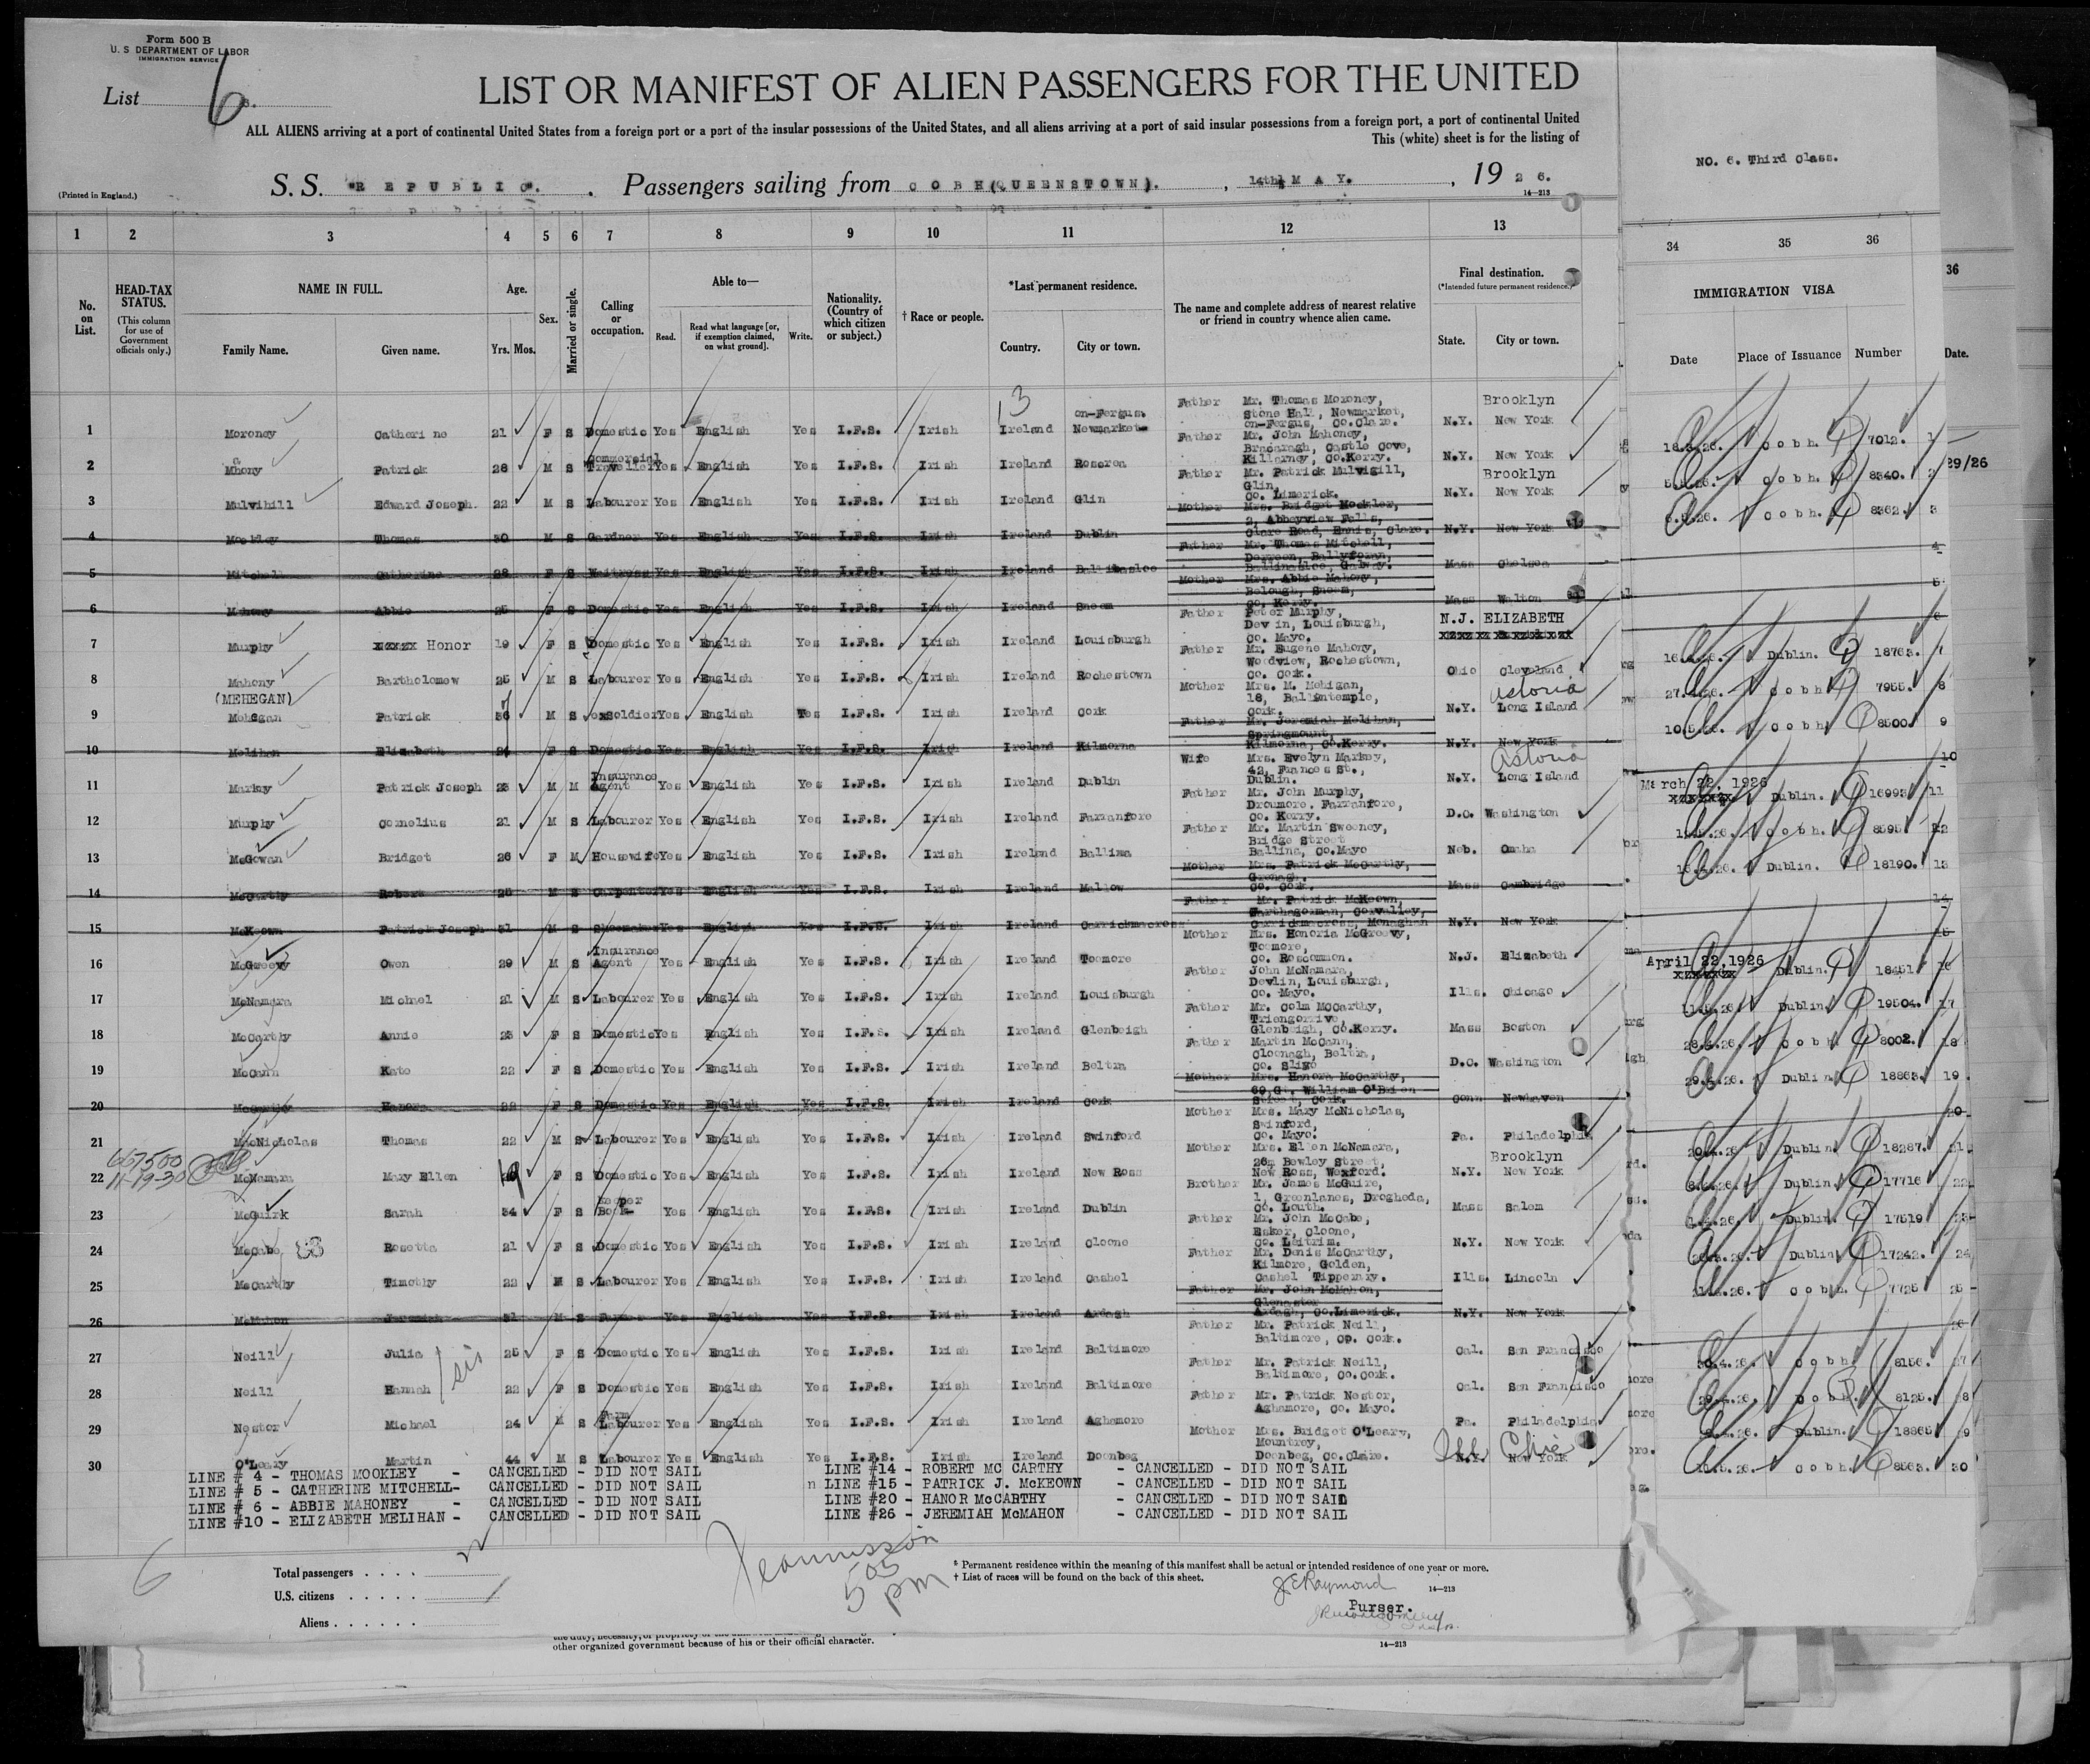 Form 500 B
U. S DEPARTMENT OF LABOR
IMMIGRATION SERVICE
List 6
LIST OR MANIFEST OF ALIEN PASSENGERS FOR THE UNITED
ALL ALIENS arriving at a port of continental United States from a foreign port or a port of the insular possessions of the United States, and all aliens arriving at a port of said insular possessions from a foreign port, a port of continental United
This (white) sheet is for the listing of
NO. 6. Third Class.
(Printed in England.)
S. S. "REPUBLIC". Passengers sailing from COBH(QUEENSTOWN). , 14th MAY. , 1926.
14—213
1 2 3 4 5 6 7 8 9 10 11 12 13 34 35 36
36
No. on List.
HEAD-TAX STATUS. (This column for use of Government officials only.)
NAME IN FULL.
Family Name. Given name.
Age. Yrs. Mos.
Sex.
Married or single.
Calling or occupation.
Able to—
Read. Read what language [or, if exemption claimed, on what ground]. Write.
Nationality. (Country of which citizen or subject.)
† Race or people.
*Last permanent residence.
Country. City or town.
The name and complete address of nearest relative or friend in country whence alien came.
Final destination.
(*Intended future permanent residence.)
State. City or town.
IMMIGRATION VISA
Date Place of Issuance Number
Date.
13
29/26
1 Moroney Catherine 21 F S Domestic Yes English Yes I.F.S. Irish Ireland Newmarket-on-Fergus. Father Mr. Thomas Moroney, Stone Hall, Newmarket, on-Fergus, Co.Clare. N.Y. Brooklyn New York Cobh. 7012. 1
2 Mhony Patrick 28 M S Commercial Traveller Yes English Yes I.F.S. Irish Ireland Roscrea Father Mr. John Mahoney, Bracaragh, Castle Cove, Killarney, Co.Kerry. N.Y. New York Cobh. 8340. 2
3 Mulvihill Edward Joseph. 22 M S Labourer Yes English Yes I.F.S. Irish Ireland Glin Father Mr. Patrick Mulvigill, Glin, Co. Limerick. N.Y. Brooklyn New York 6.5.26. Cobh. 8362. 3
4 Mookley Thomas 30 M S Gardner Yes English Yes I.F.S. Irish Ireland Dublin Mother Mrs. Bridget Mockler, 2, Abbeyview Falls, Clare Road, Ennis, Clare. N.Y. New York 4
5 Mitchell Catherine 28 F S Waitress Yes English Yes I.F.S. Irish Ireland Ballinasloe Father Mr. Thomas Mitchell, Derreen, Ballyforan, Ballinasloe, Galway. Mass Chelsea 5
6 Mahony Abbie 25 F S Domestic Yes English Yes I.F.S. Irish Ireland Sneem Mother Mrs. Abbie Mahony, Bolough, Sneem, Co. Kerry. Mass Walton 6
7 Murphy Honor 19 F S Domestic Yes English Yes I.F.S. Irish Ireland Louisburgh Father Peter Murphy, Devin, Louisburgh, Co. Mayo. N.J. ELIZABETH Dublin. 18763. 7
8 Mahony Bartholomew 25 M S Labourer Yes English Yes I.F.S. Irish Ireland Rochestown Father Mr. Eugene Mahony, Woodview, Rochestown, Co. Cork. Ohio Cleveland 27.4.26. Cobh 7955. 8
(MEHEGAN)
9 Mehegan Patrick 36 M S exSoldier Yes English Yes I.F.S. Irish Ireland Cork Mother Mrs. M. Mehigan, 18, Ballintemple, Cork. N.Y. Astoria Long Island 10.5.26. Cobh. 8500. 9
10 Melihan Elizabeth 24 F S Domestic Yes English Yes I.F.S. Irish Ireland Kilmorna Father Mr. Jeremiah Melihan, Springmount, Kilmorna, Co.Kerry. N.Y. New York 10
11 Markey Patrick Joseph 23 M M Insurance Agent Yes English Yes I.F.S. Irish Ireland Dublin Wife Mrs. Evelyn Markey, 42, Frances St., Dublin. N.Y. Astoria Long Island March 22, 1926 Dublin. 16993 11
12 Murphy Cornelius 21 M S Labourer Yes English Yes I.F.S. Irish Ireland Farranfore Father Mr. John Murphy, Droumore. Farranfore, Co. Kerry. D.C. Washington Cobh. 8595 12
13 McGowan Bridget 26 F M Housewife Yes English Yes I.F.S. Irish Ireland Ballina Father Mr. Martin Sweeney, Bridge Street Ballina, Co.Mayo Neb. Omaha Dublin. 18190. 13
14 McCarthy Robert 25 M S Carpenter Yes English Yes I.F.S. Irish Ireland Mallow Mother Mrs. Patrick McCarthy, Grenagh. Co. Cork. Mass Cambridge 14
15 McKeown Patrick Joseph 31 M S Shoemaker Yes English Yes I.F.S. Irish Ireland Carrickmacross Father Mr. Patrick McKeown, Corvalley, Carrickmacross, Monaghan N.Y. New York 15
16 McGreevy Owen 29 M S Insurance Agent Yes English Yes I.F.S. Irish Ireland Toomore Mother Mrs. Honoria McGreevy, Toomore, Co. Roscommon. N.J. Elizabeth April 22,1926 Dublin. 18451 16
17 McNamara Michael 21 M S Labourer Yes English Yes I.F.S. Irish Ireland Louisburgh Father John McNamara, Devlin, Louisburgh, Co. Mayo. Ills. Chicago Dublin 19504. 17
18 McCarthy Annie 23 F S Domestic Yes English Yes I.F.S. Irish Ireland Glenbeigh Father Mr. Colm McCarthy, Glenbeigh, Co.Kerry. Mass Boston 28.4.26. Cobh 8002. 18
19 McCann Kate 22 F S Domestic Yes English Yes I.F.S. Irish Ireland Beltra Father Martin McCann, Cloonagh, Beltra, Co. Sligo D.C. Washington 29.4.26. Dublin. 18863. 19
20 McCarthy Hanora 22 F S Domestic Yes English Yes I.F.S. Irish Ireland Cork Mother Mrs. Hanora McCarthy, 69 Gt. William O'Brien Street, Cork. Conn Newhaven 20
21 MacNicholas Thomas 22 M S Labourer Yes English Yes I.F.S. Irish Ireland Swinford Mother Mrs. Mary McNicholas, Swinford, Co. Mayo. Pa. Philadelphia Dublin 18287. 21
667500
11-19-30
22 McNamara Mary Ellen F S Domestic Yes English Yes I.F.S. Irish Ireland New Ross Mother Mrs. Ellen McNamara, 26, Bewley Street, New Ross, Wexford. N.Y. Brooklyn New York Dublin. 17716 22
23 McGuirk Sarah 34 F S Book-keeper Yes English Yes I.F.S. Irish Ireland Dublin Brother Mr. James McGuire, 1, Greenlanes, Drogheda, Co. Louth. Mass Salem Dublin. 17519 23
24 McCabe Rosetta 21 F S Domestic Yes English Yes I.F.S. Irish Ireland Cloone Father Mr. John McCabe, Esker, Cloone, Co. Leitrim. N.Y. New York Dublin. 17242. 24
25 McCarthy Timothy 22 M S Labourer Yes English Yes I.F.S. Irish Ireland Cashel Father Mr. Denis McCarthy, Kilmore, Golden, Cashel Tipperary. Ills. Lincoln Cobh. 7725 25
26 McMahon Jeremiah 31 M S Farmer Yes English Yes I.F.S. Irish Ireland Ardagh Father Mr. John McMahon, Glenaster Ardagh, Co.Limerick. N.Y. New York 26
27 Neill Julia sis 25 F S Domestic Yes English Yes I.F.S. Irish Ireland Baltimore Father Mr. Patrick Neill, Baltimore, Co. Cork. Cal. San Francisco Cobh. 8156. 27
28 Neill Hannah 22 F S Domestic Yes English Yes I.F.S. Irish Ireland Baltimore Father Mr. Patrick Neill, Baltimore, Co.Cork. Cal. San Francisco Cobh. 8125. 28
29 Nestor Michael 24 M S Farm Labourer Yes English Yes I.F.S. Irish Ireland Aghamore Father Mr. Patrick Nestor, Aghamore, Co. Mayo. Pa. Philadelphia Dublin. 18865 29
30 O'Leary Martin 44 M S Labourer Yes English Yes I.F.S. Irish Ireland Doonbeg Mother Mrs. Bridget O'Leary, Mountrey, Doonbeg, Co.Clare. N.Y. New York Ill Chic 10.5.26. Cobh. 8563. 30
LINE # 4 - THOMAS MOOKLEY - CANCELLED - DID NOT SAIL LINE #14 - ROBERT MC CARTHY - CANCELLED - DID NOT SAIL
LINE # 5 - CATHERINE MITCHELL- CANCELLED - DID NOT SAIL n LINE #15 - PATRICK J. McKEOWN - CANCELLED - DID NOT SAIL
LINE # 6 - ABBIE MAHONEY - CANCELLED - DID NOT SAIL LINE #20 - HANOR McCARTHY - CANCELLED - DID NOT SAIL
LINE #10 - ELIZABETH MELIHAN - CANCELLED - DID NOT SAIL LINE #26 - JEREMIAH McMAHON - CANCELLED - DID NOT SAIL
6
Total passengers . . . .
U.S. citizens . . . . . .
Aliens . . . . . .
5 05 pm
* Permanent residence within the meaning of this manifest shall be actual or intended residence of one year or more.
† List of races will be found on the back of this sheet.
14—213
J E Raymond
Purser.
other organized government because of his or their official character.
14—213